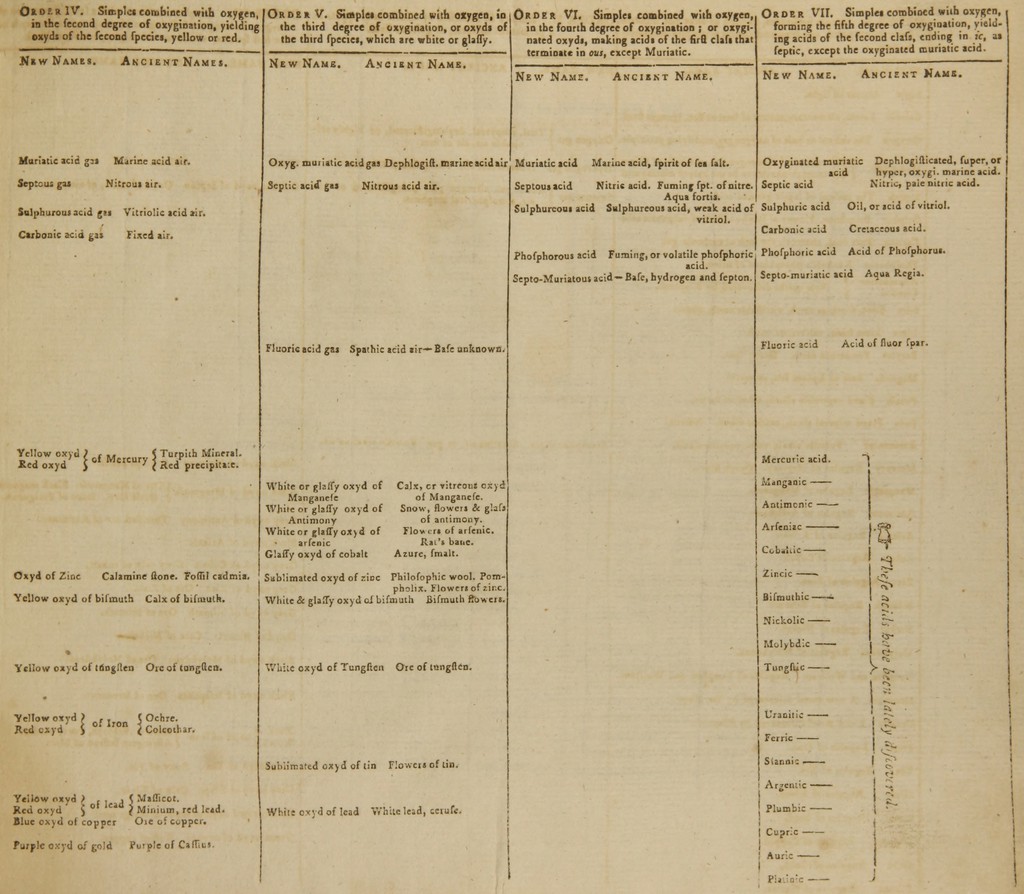 ORDER IV. Simples combined with oxygen,
in the ſecond degree of oxygination, yielding
oxyds of the ſecond ſpecies, yellow or red.
NEW NAMES. ANCIENT NAMES.
Muriatic acid gas Marine acid air.
Septous gas Nitrous air.
Sulphurous acid gas Vitriolic acid air.
Carbonic acid gas Fixed air.
Yellow oxyd } of Mercury { Turpith Mineral.
Red oxyd } { Red precipitate.
Oxyd of Zinc Calamine ſtone. Foſſil cadmia.
Yellow oxyd of biſmuth Calx of biſmuth.
Yellow oxyd of tungſten Ore of tungſten.
Yellow oxyd } of Iron { Ochre.
Red oxyd } { Colcothar.
Yellow oxyd } of lead { Maſſicot.
Red oxyd } { Minium, red lead.
Blue oxyd of copper Ore of copper.
Purple oxyd of gold Purple of Caſſius.
ORDER V. Simples combined with oxygen, in
the third degree of oxygination, or oxyds of
the third ſpecies, which are white or glaſſy.
NEW NAME. ANCIENT NAME.
Oxyg. muriatic acid gas Dephlogiſt. marine acid air
Septic acid gas Nitrous acid air.
Fluoric acid gas Spathic acid air—Baſe unknown.
White or glaſſy oxyd of Calx, or vitreous oxyd
Manganeſe of Manganeſe.
White or glaſſy oxyd of Snow, flowers & glaſs
Antimony of antimony.
White or glaſſy oxyd of Flowers of arſenic.
arſenic Rat's bane.
Glaſſy oxyd of cobalt Azure, ſmalt.
Sublimated oxyd of zinc Philoſophic wool. Pom-
pholix. Flowers of zinc.
White & glaſſy oxyd of biſmuth Biſmuth flowers.
White oxyd of Tungſten Ore of tungſten.
Sublimated oxyd of tin Flowers of tin.
White oxyd of lead White lead, ceruſe.
ORDER VI. Simples combined with oxygen,
in the fourth degree of oxygination; or oxygi-
nated oxyds, making acids of the firſt claſs that
terminate in ous, except Muriatic.
NEW NAME. ANCIENT NAME.
Muriatic acid Marine acid, ſpirit of ſea ſalt.
Septous acid Nitric acid. Fuming ſpt. of nitre.
Aqua fortis.
Sulphureous acid Sulphureous acid, weak acid of
vitriol.
Phoſphorous acid Fuming, or volatile phoſphoric
acid.
Septo-Muriatous acid—Baſe, hydrogen and ſepton.
ORDER VII. Simples combined with oxygen,
forming the fifth degree of oxygination, yield-
ing acids of the ſecond claſs, ending in ic, as
ſeptic, except the oxyginated muriatic acid.
NEW NAME. ANCIENT NAME.
Oxyginated muriatic Dephlogiſticated, ſuper, or
acid hyper, oxygi. marine acid.
Septic acid Nitric, pale nitric acid.
Sulphuric acid Oil, or acid of vitriol.
Carbonic acid Cretaceous acid.
Phoſphoric acid Acid of Phoſphorus.
Septo-muriatic acid Aqua Regia.
Fluoric acid Acid of fluor ſpar.
Mercuric acid.
Manganic —
Antimonic —
Arſeniac —
Cobaltic —
Zincic —
Biſmuthic —
Nickolic —
Molybdic —
Tungſtic —
Uranitic —
Ferric —
Stannic —
Argentic —
Plumbic —
Cupric —
Auric —
Platinic —
Theſe acids have been lately diſcovered.